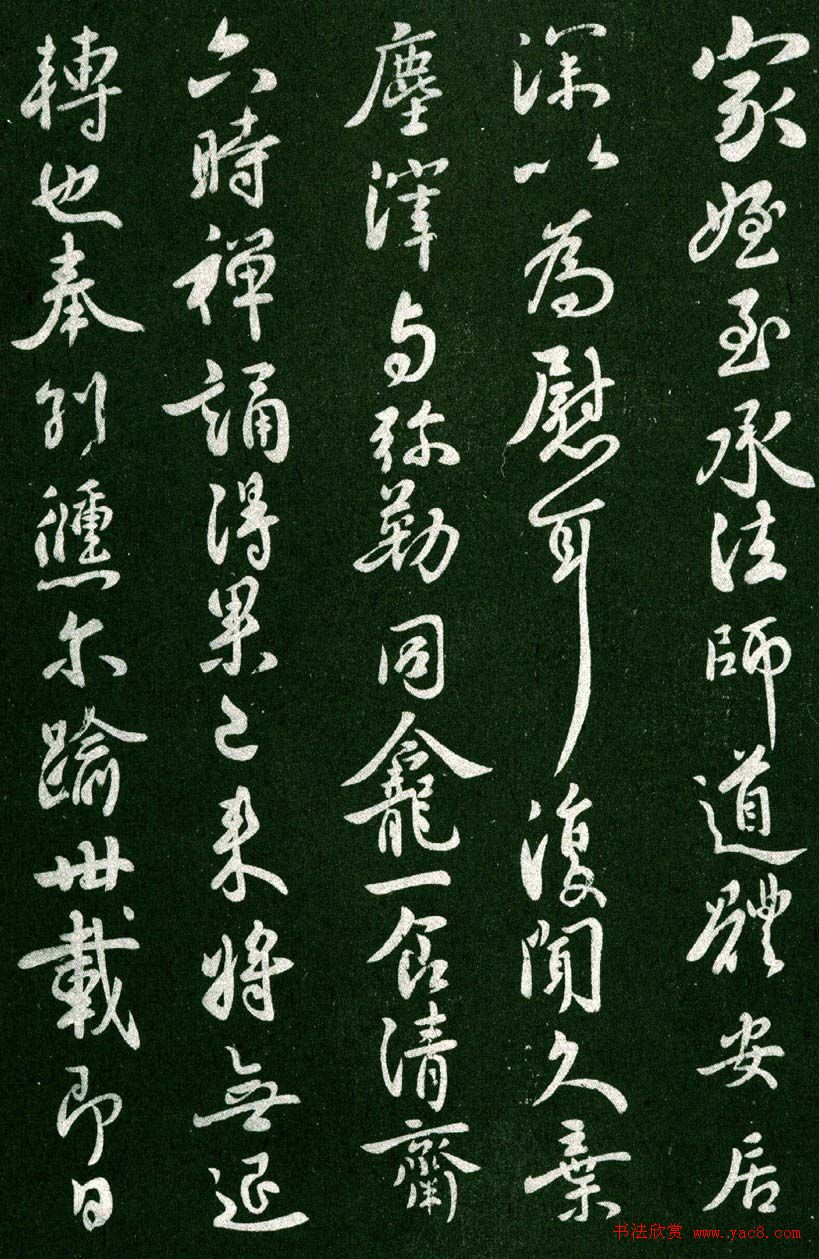 家姪至承法師道體安居
深以為慰耳復聞久棄
塵滓与弥勒同龕一食清齋
六時禪誦得果已來將無退
轉也奉別儵尓踰卅載即日
书法欣赏 www.yac8.com